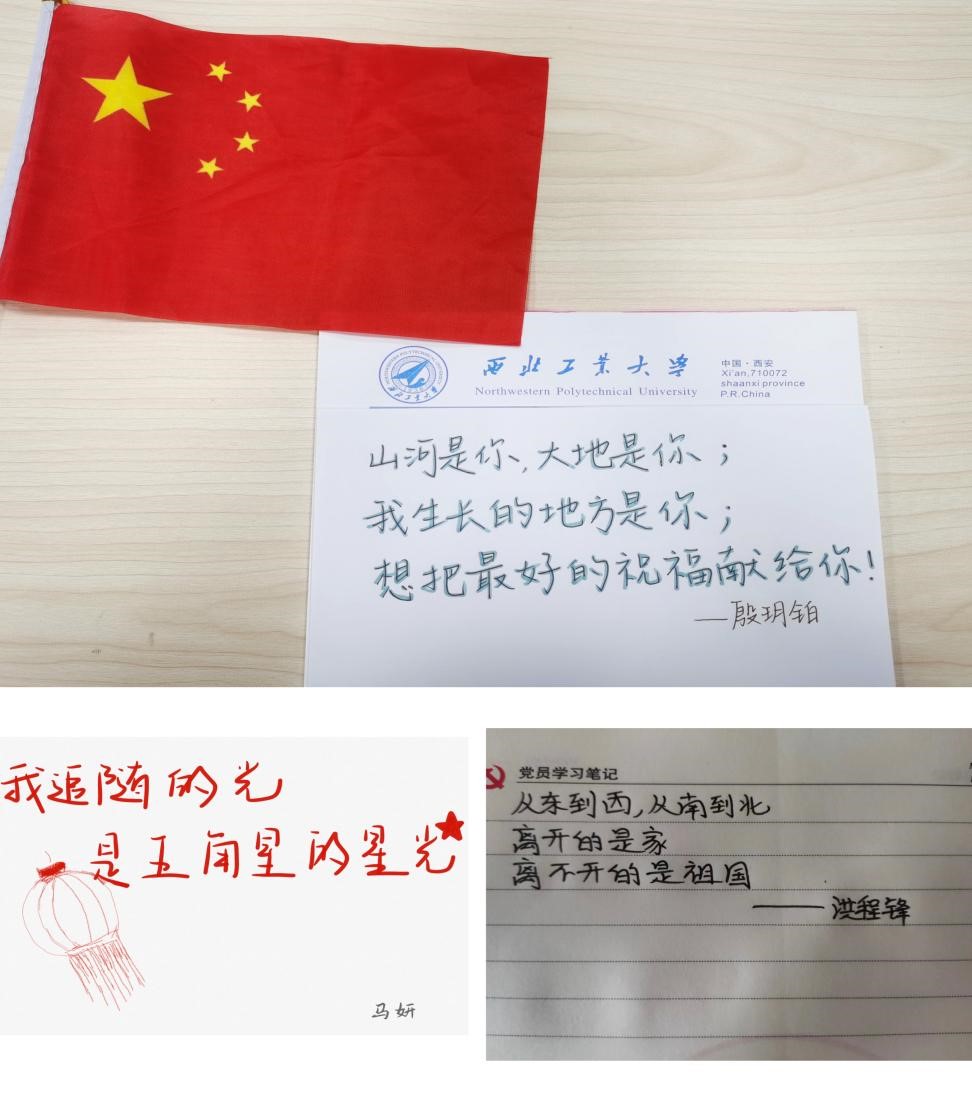 西北工业大学
Northwestern Polytechnical University
中国·西安
Xi'an,710072
shaanxi province
P.R.China
山河是你,大地是你;
我生长的地方是你;
想把最好的祝福献给你!
——殷玥铂
我追随的光
是五角星的星光
马妍
党员学习笔记
从东到西,从南到北
离开的是家
离不开的是祖国
——洪程锋